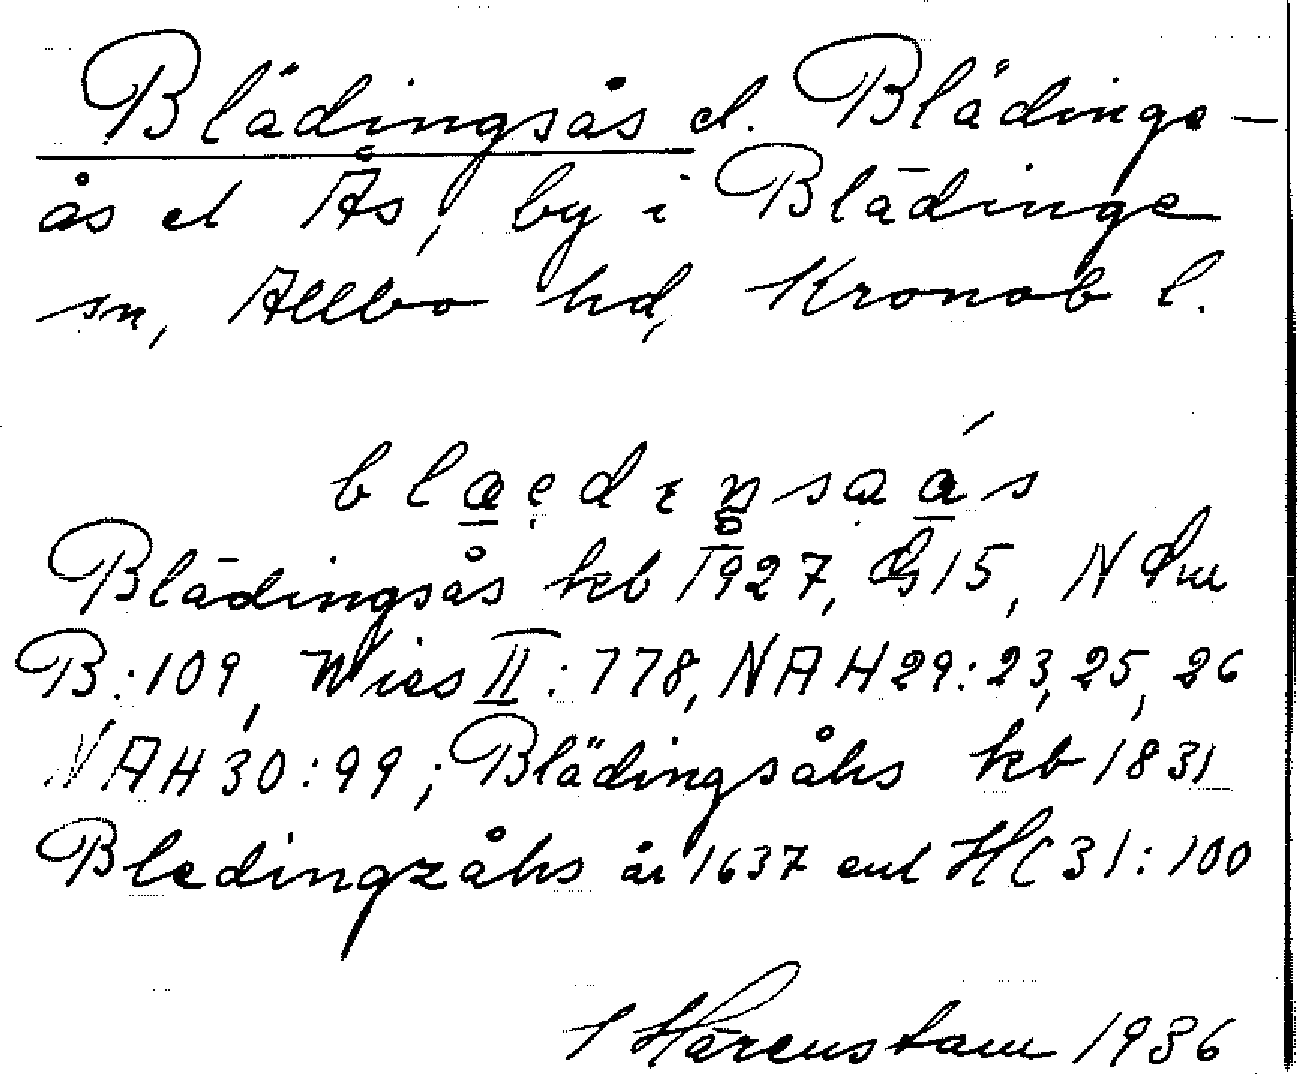 Blädingsås el. Blädinge-
ås el Ås, by i Blädinge
sn, Allbo hd, Kronob l.
Blädingsås kb 1927, G 15, N
B:109, Wies II:778, NAH 29:23, 25, 26
NAH 30:99; Blädingsåhs kb 1831
Bledingzåhs år 1637 enl HC 31:100
Härenstam 1936